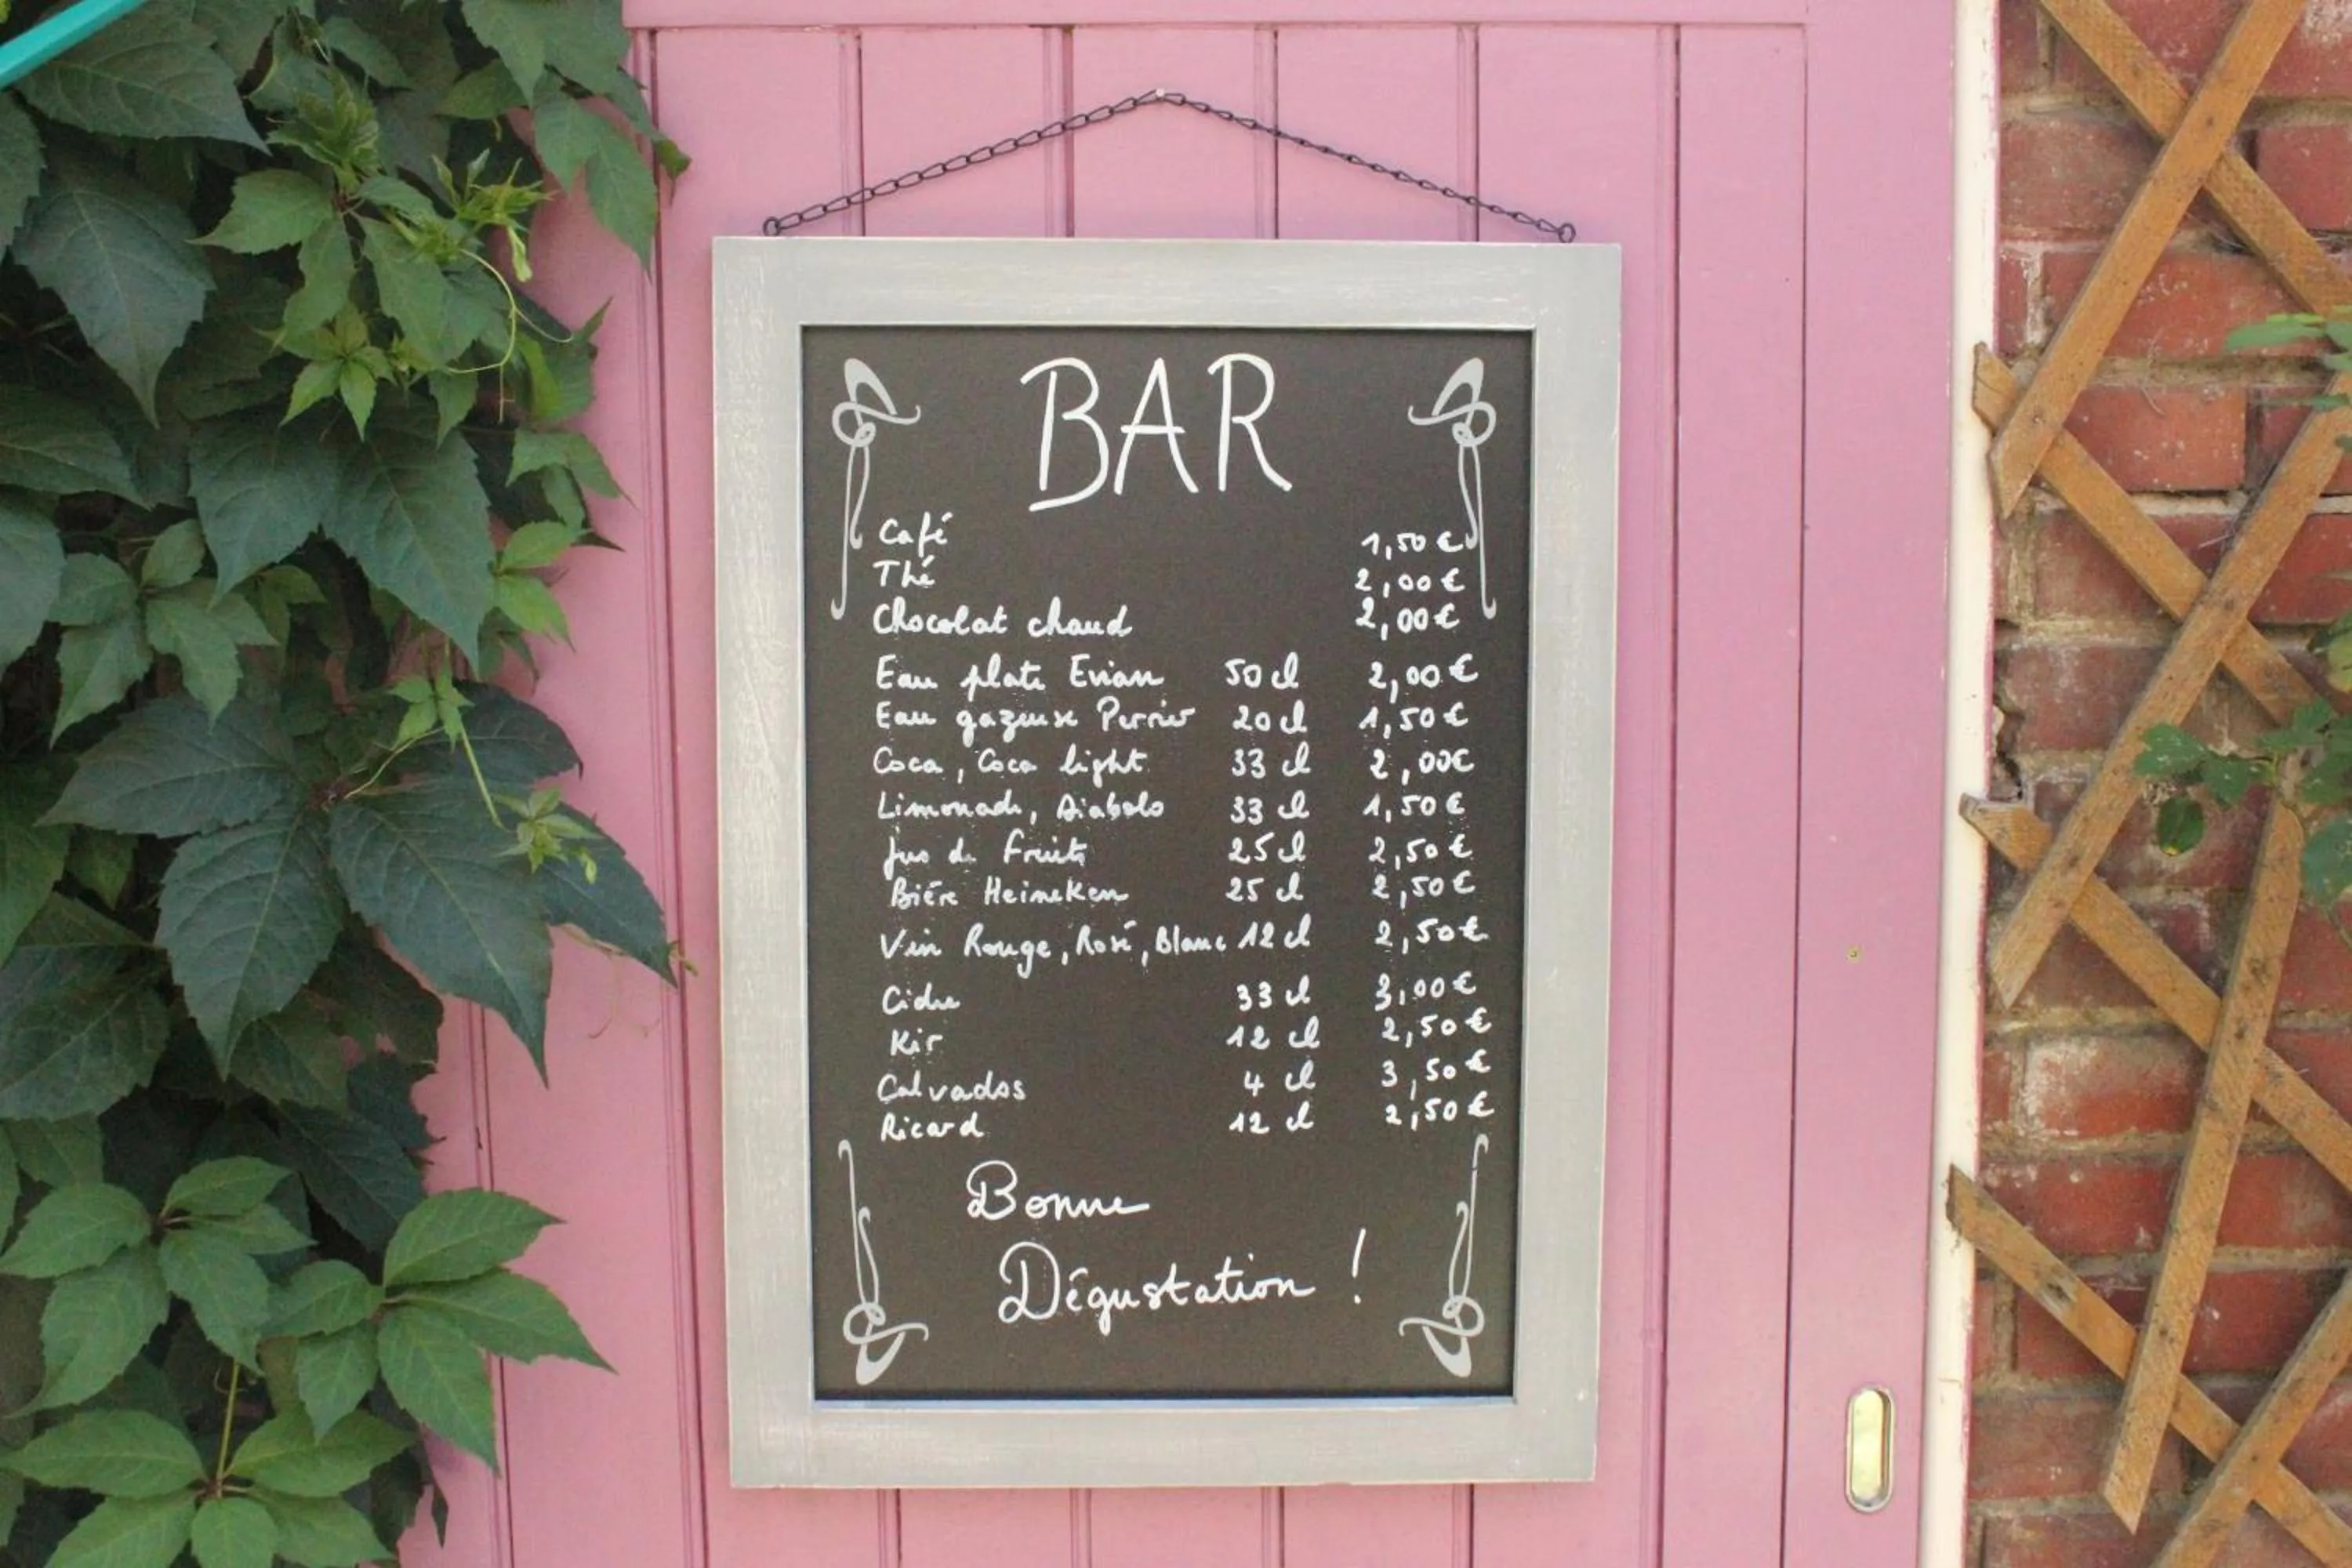 BAR
Café 1,50 €
Thé 2,00 €
Chocolat chaud 2,00 €
Eau plate Evian 50 cl 2,00 €
Eau gazeuse Perrier 20 cl 1,50 €
Coca, Coca light 33 cl 2,00 €
Limonade, Diabolo 33 cl 1,50 €
Jus de Fruits 25 cl 2,50 €
Bière Heineken 25 cl 2,50 €
Vin Rouge, Rosé, Blanc 12 cl 2,50 €
Cidre 33 cl 3,00 €
Kir 12 cl 2,50 €
Calvados 4 cl 3,50 €
Ricard 12 cl 2,50 €
Bonne
Dégustation !